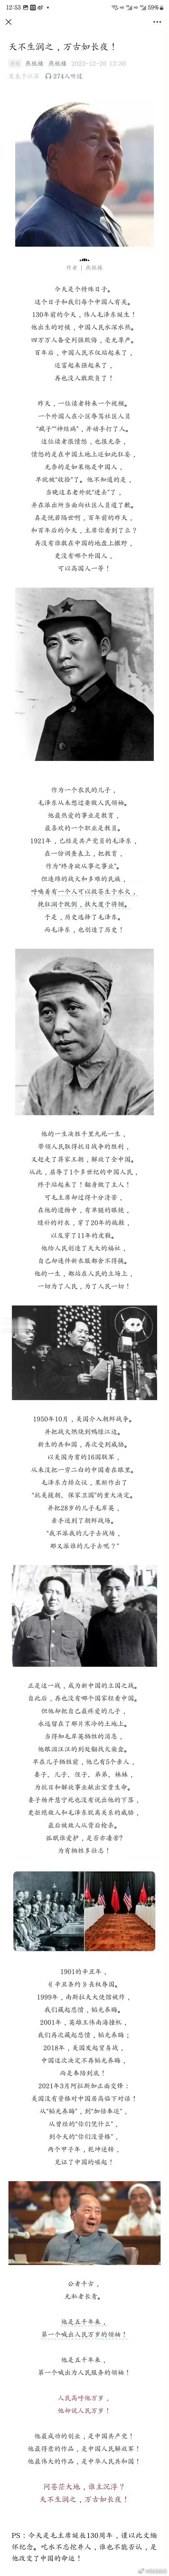 12:53
59%
天不生润之，万古如长夜！
燕梳楼 燕梳楼 2023-12-26 12:30
发表于江苏 274人听过
作者 | 燕梳楼
今天是个特殊日子。
这个日子和我们每个中国人有关。
130年前的今天，伟人毛泽东诞生！
他出生的时候，中国人民水深火热。
四万万人备受列强欺侮，毫无尊严。
百年后，中国人民不仅站起来了，
还富起来强起来了，
再也没人敢欺负了！
昨天，一位读者转来一个视频。
一个外国人在小区辱骂社区人员
“疯子”“神经病”，并动手打了人。
这位读者很愤怒，也很无奈，
愤怒的是在中国土地上还如此狂妄，
无奈的是如果他是中国人，
早就被“收拾”了。他不知道的是，
当晚这名老外就“进去”了，
并在派出所当面向社区人员道了歉。
真是恍若隔世啊，百年前的昨天，
和百年后的今天，主席你看到了么？
再没有谁敢在中国的地盘上撒野，
更没有哪个外国人，
可以高国人一等！
作为一个农民的儿子，
毛泽东从未想过要做人民领袖。
他最热爱的事业是教育，
最喜欢的一个职业是教员。
1921年，已经是共产党员的毛泽东，
在一份调查表上，把教育，
作为“终身欲从事之事业”。
但连绵的战火和多难的民族，
呼唤着有一个人可以救苍生于水火，
挽狂澜于既倒，扶大厦于将倾。
于是，历史选择了毛泽东。
而毛泽东，也创造了历史！
他的一生决胜千里九死一生，
带领人民取得抗日战争的胜利，
又赶走了蒋家王朝，解放了全中国。
从此，屈辱了1个多世纪的中国人民，
终于站起来了！翻身做了主人！
可毛主席却过得十分清苦，
在他的遗物中，有单腿的眼镜，
缝补的衬衣，穿了20年的拖鞋，
以及穿了11年的皮鞋。
他给人民创造了天大的福祉，
自己却连件新衣服都舍不得换。
他的一生，都站在人民的立场上，
一切为了人民，为了人民一切！
1950年10月，美国介入朝鲜战争。
并把战火燃烧到鸭绿江边。
新生的共和国，再次受到威胁。
以美国为首的16国联军，
从来没把一穷二白的中国看在眼里。
毛泽东力排众议，果断作出了
“抗美援朝、保家卫国”的重大决定。
并把28岁的儿子毛岸英，
亲手送到了朝鲜战场。
“我不派我的儿子去战场，
那又派谁的儿子去呢？”
正是这一战，成为新中国的立国之战。
自此后，再也没有哪个国家轻看中国。
但他却把自己最疼爱的儿子，
永远留在了那片寒冷的土地上。
当得知毛岸英牺牲的消息，
他眼泪汪汪的到处翻找火柴盒。
早在儿子牺牲前，他已有5个亲人，
妻子、儿子、侄子、弟弟、妹妹，
为抗日和解放事业献出宝贵生命。
妻子杨开慧宁死也没有说出他的下落，
更拒绝敌人和毛泽东脱离关系的威胁，
最后被敌人从背后枪杀。
孤眠谁爱妒，是否亦凄苦？
为有牺牲多壮志！
1901的辛丑年，
《辛丑条约》丧权辱国。
1999年，南斯拉夫大使馆被炸，
我们藏起悲愤，韬光养晦。
2001年，英雄王伟南海撞机，
我们再次藏起悲愤，韬光养晦；
2018年，美国发起贸易战，
中国这次决定不再韬光养晦，
而是奉陪到底！
2021年3月阿拉斯加正面交锋：
美国没有资格对中国居高临下对话！
从“韬光养晦”，到“加倍奉还”，
从曾经的“你们凭什么”，
到今天的“你们没资格”，
两个甲子年，乾坤逆转，
见证了中国的崛起！
公者千古，
无私者长青。
他是五千年来，
第一个喊出人民万岁的领袖！
他是五千年来，
第一个喊出为人民服务的领袖！
人民高呼他万岁，
他却说人民万岁！
他最成功的创业，是中国共产党！
他最得意的作品，是中国人民解放军！
他最伟大的作品，是中华人民共和国！
问苍茫大地，谁主沉浮？
天不生润之，万古如长夜！
PS：今天是毛主席诞辰130周年，谨以此文缅
怀纪念。吃水不忘挖井人，谁也不能否认，是
他改变了中国的命运！